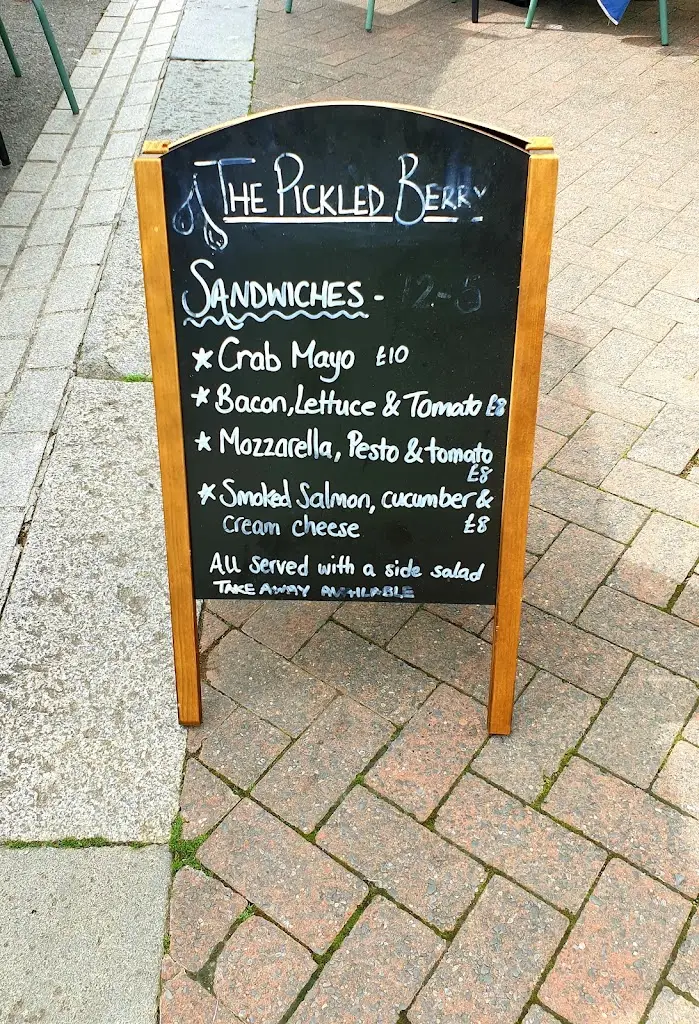 The Pickled Berry
Sandwiches - 12-5
* Crab Mayo £10
* Bacon, Lettuce & Tomato £8
* Mozzarella, Pesto & tomato
£8
* Smoked Salmon, cucumber &
cream cheese £8
All served with a side salad
TAKE AWAY AVAILABLE